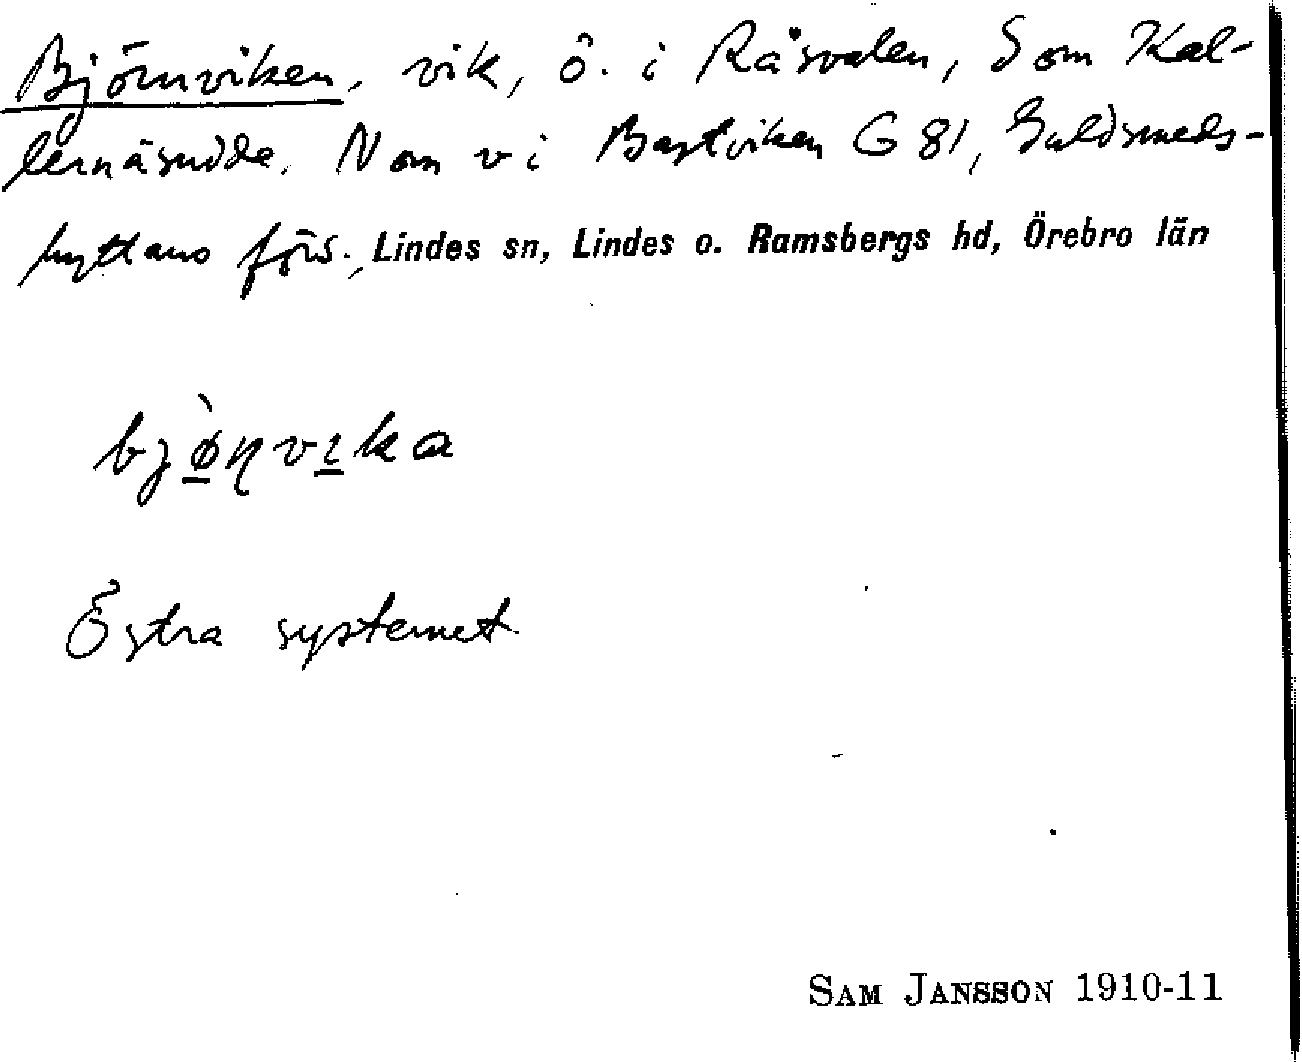 Björnviken, vik, ö. i Råsvalen, S om Kal-
lernäsudde. N om v i Bastviken G 81, Guldsmeds-
hyttans förs., Lindes sn, Lindes o. Ramsbergs hd, Örebro län
bjø̀ɳvɩka
Östra systemet
SAM JANSSON 1910-11